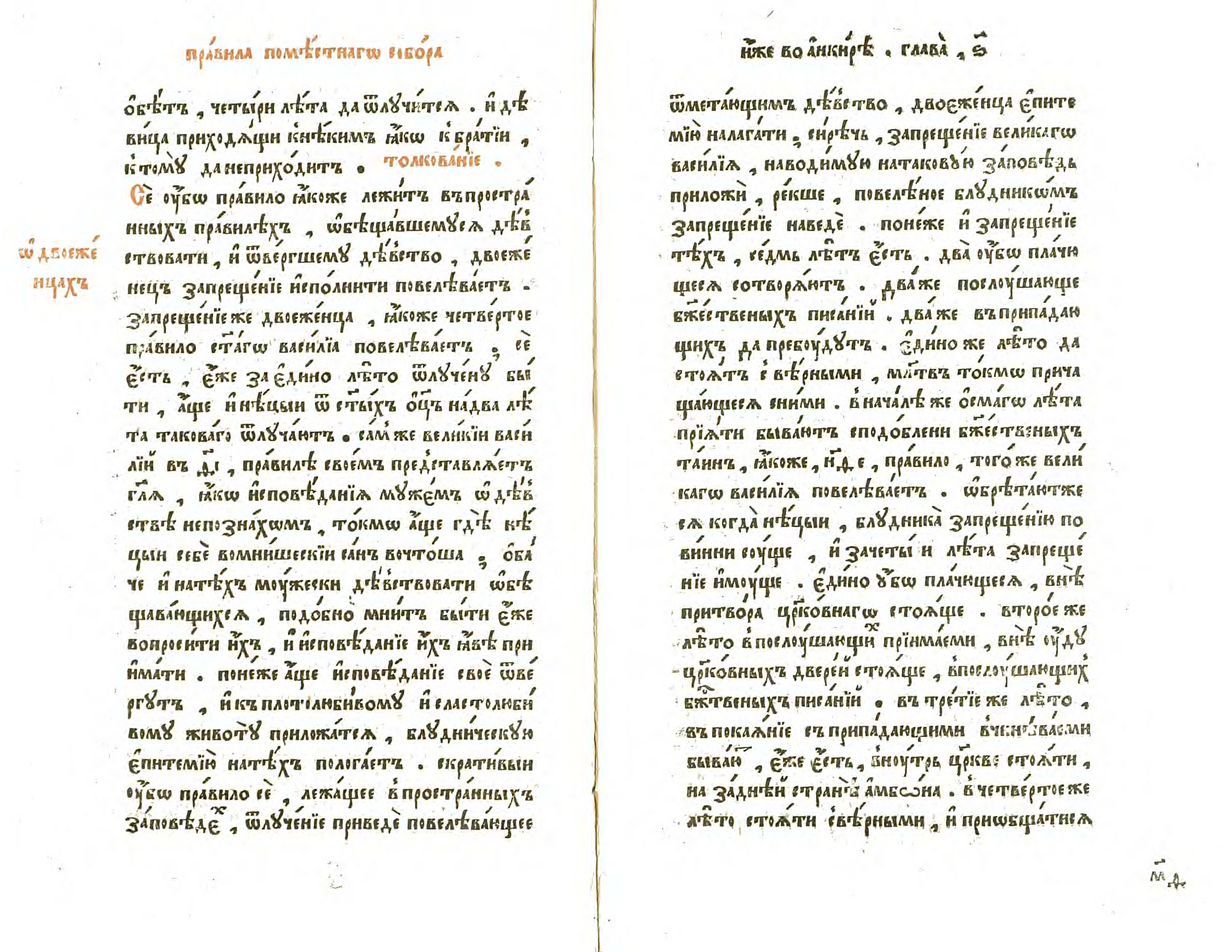 пра́вила помѣ́стнагѡ собо́ра
ѻ҆бѣ́тъ , четы́ри лѣ́та да ѿлꙋчи́тсѧ . и҆ дѣ
ви́ца приходѧ́щи кнѣ́кимъ ꙗ҆́кѡ к҆ бра́тїи ,
к҆ томꙋ̀ данеприхо́дитъ . толкова́нїе .
Сѐ ᲂу҆́бѡ пра́вило ꙗ҆́коже лежи́тъ въпростра́
нныхъ пра́вилѣхъ , ѡ҆бѣща́вшемꙋсѧ дѣ́в
ствовати , и҆ ѿве́ргшемꙋ дѣ́вство , двоеже́
нецъ запреще́нїе и҆спо́лнити повелѣва́етъ .
запреще́нїеже двоеже́нца , ꙗ҆́коже четве́ртое
пра́вило ст҃а́гѡ васи́лїа повелѣва́етъ , се́
є҆́сть , є҆́же за є҆ди́но лѣ́то ѿлꙋче́нꙋ бы́
ти , а҆́ще и҆ нѣ́цыи ѿ ст҃ы́хъ ѻ҆ц҃ъ на́два лѣ́
та такова́го ѿлꙋча́ютъ . са́м же вели́кїи васи́
лїй въ д҃і , пра́вилѣ свое́мъ представлѧ́етъ
гл҃ѧ , ꙗ҆́кѡ и҆сповѣ́данїѧ мꙋже́мъ ѡ҆ дѣ́в
ствѣ непозна́хомъ , то́кмѡ а҆́ще гдѣ̀ нѣ́
цыи себѐ вомни́шескїи са́нъ вочто́ша , ѻ҆ба́
че и҆ натѣ́хъ моꙋ́жески дѣ́вствовати ѡ҆бѣ
щава́ющихсѧ , подо́бно мни́тъ бы́ти є҆́же
вопроси́ти и҆́хъ , и҆ и҆сповѣ́данїе и҆́хъ ꙗ҆́вѣ при
и҆ма́ти . поне́же а҆́ще и҆сповѣ́данїе своѐ ѿве́
ргꙋтъ , и҆ къ плотолюби́вомꙋ и҆ сластолюби́
вомꙋ животꙋ̀ приложа́тсѧ , блꙋдни́ческꙋю
є҆питемїю̀ натѣ́хъ полога́етъ . скрати́выи
ᲂу҆́бѡ пра́вило сѐ , лежа́щее в҆простра́нныхъ
за́повѣдеⷯ , ѿлꙋче́нїе приведѐ повелѣва́ющее
ѡ҆ двоеже́
нцахъ
и҆́же во а҆нки́рѣ . глава̀ , ѕ҃
ѿмета́ющимъ дѣ́вство , двоеже́нца є҆пите
мїю̀ налага́ти , си́рѣчь , запреще́нїе вели́кагѡ
васи́лїѧ , наводи́мꙋю натаковꙋ́ю за́повѣдь
приложѝ , ре́кше , повелѣ́ное блꙋдникѡ́мъ
запреще́нїе наведѐ . поне́же и҆ запреще́нїе
тѣ́хъ , се́дмь лѣ́тъ є҆́сть . два̀ ᲂу҆́бѡ пла́чю
щесѧ сотворѧ́ютъ . два́же послоу́шающе
бж҃е́ственыхъ писа́нїй . два́же въприпа́даю
щихъ да пребоу́дꙋтъ . є҆ди́но же лѣ́то да
стоѧ́тъ с҆ вѣ́рными , мл҃твъ то́кмѡ прича
ща́ющесѧ сни́ми . в҆нача́лѣ же ѻ҆сма́гѡ лѣ́та
прїѧ́ти быва́ютъ сподо́блени бж҃е́ственыхъ
та́инъ , ꙗ҆́коже , н҃ѳ е , пра́вило , того́же вели́
кагѡ васи́лїѧ повелѣва́етъ . ѡ҆брѣта́ютже
сѧ когда̀ нѣ́цыи , блꙋдника̀ запреще́нїю по
ви́нни соу́ще , и҆ зачеты́ и лѣ́та запреще́
нїе и҆мᲂу́ще . є҆ди́но ᲂу҆́бѡ пла́чющесѧ , внѣ̀
притво́ра цр҃ко́внагѡ стоѧ́ще . второ́еже
лѣ́то впослоу́шающиⷯ прїима́еми , внѣ̀ ᲂу҆́дꙋ
цр҃ко́вныхъ двере́й стоѧ́ще , впослоу́шающиⷯ
бж҃твеныхъ писа́нїй . въ тре́тїе же лѣ́то ,
въ покаѧ́нїе съприпа́дающими вчинѧ́еми
быва́ю , є҆́же є҆́сть , вноу́трь цр҃кве стоѧ́ти ,
на за́днѣй странѣ̀ а҆мбѡ́на . в҆ четве́ртоеже
лѣ́то стоѧ́ти с҆вѣ́рными , и҆ приѡбща́тисѧ
м҃д